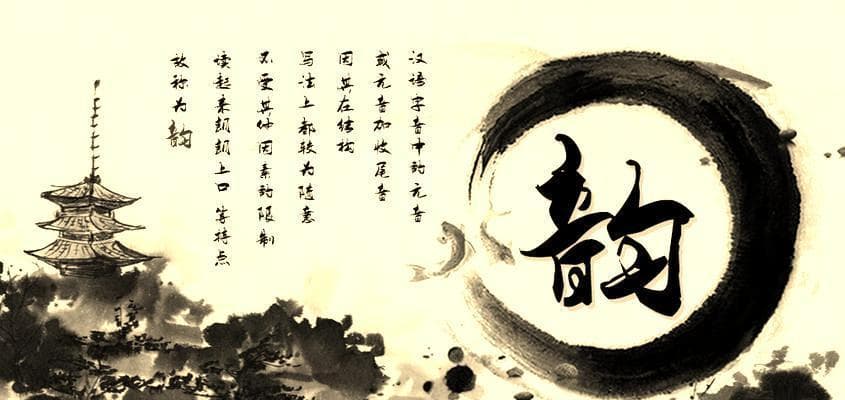 汉语字音中的元音
或元音加收尾音
因其在结构
写法上都较为随意
不受其他因素的限制
读起来朗朗上口 等特点
故称为韵
韵